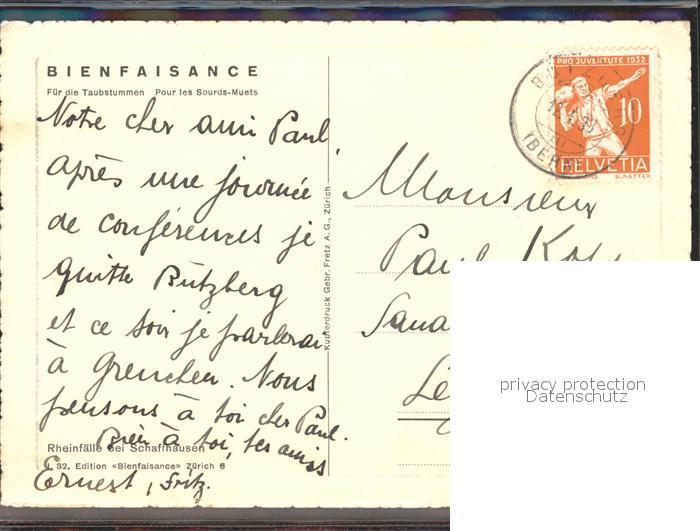 BIENFAISANCE
Für die Taubstummen Pour les Sourds-Muets
Notre cher ami Paul,
après une journée
de conférences je
quitte Bützberg
et ce soir je parlerai
à Grenchen. Nous
pensons à toi cher Paul.
Bien à toi, tes amis
Ernest, Fritz.
Rheinfälle bei Schaffhausen
32. Edition «Bienfaisance» Zürich 6
Kupferdruck Gebr. Fretz A.G., Zürich
PRO JUVENTUTE 1932
10
HELVETIA
(BERN)
Monsieur
Paul
privacy protection
Datenschutz